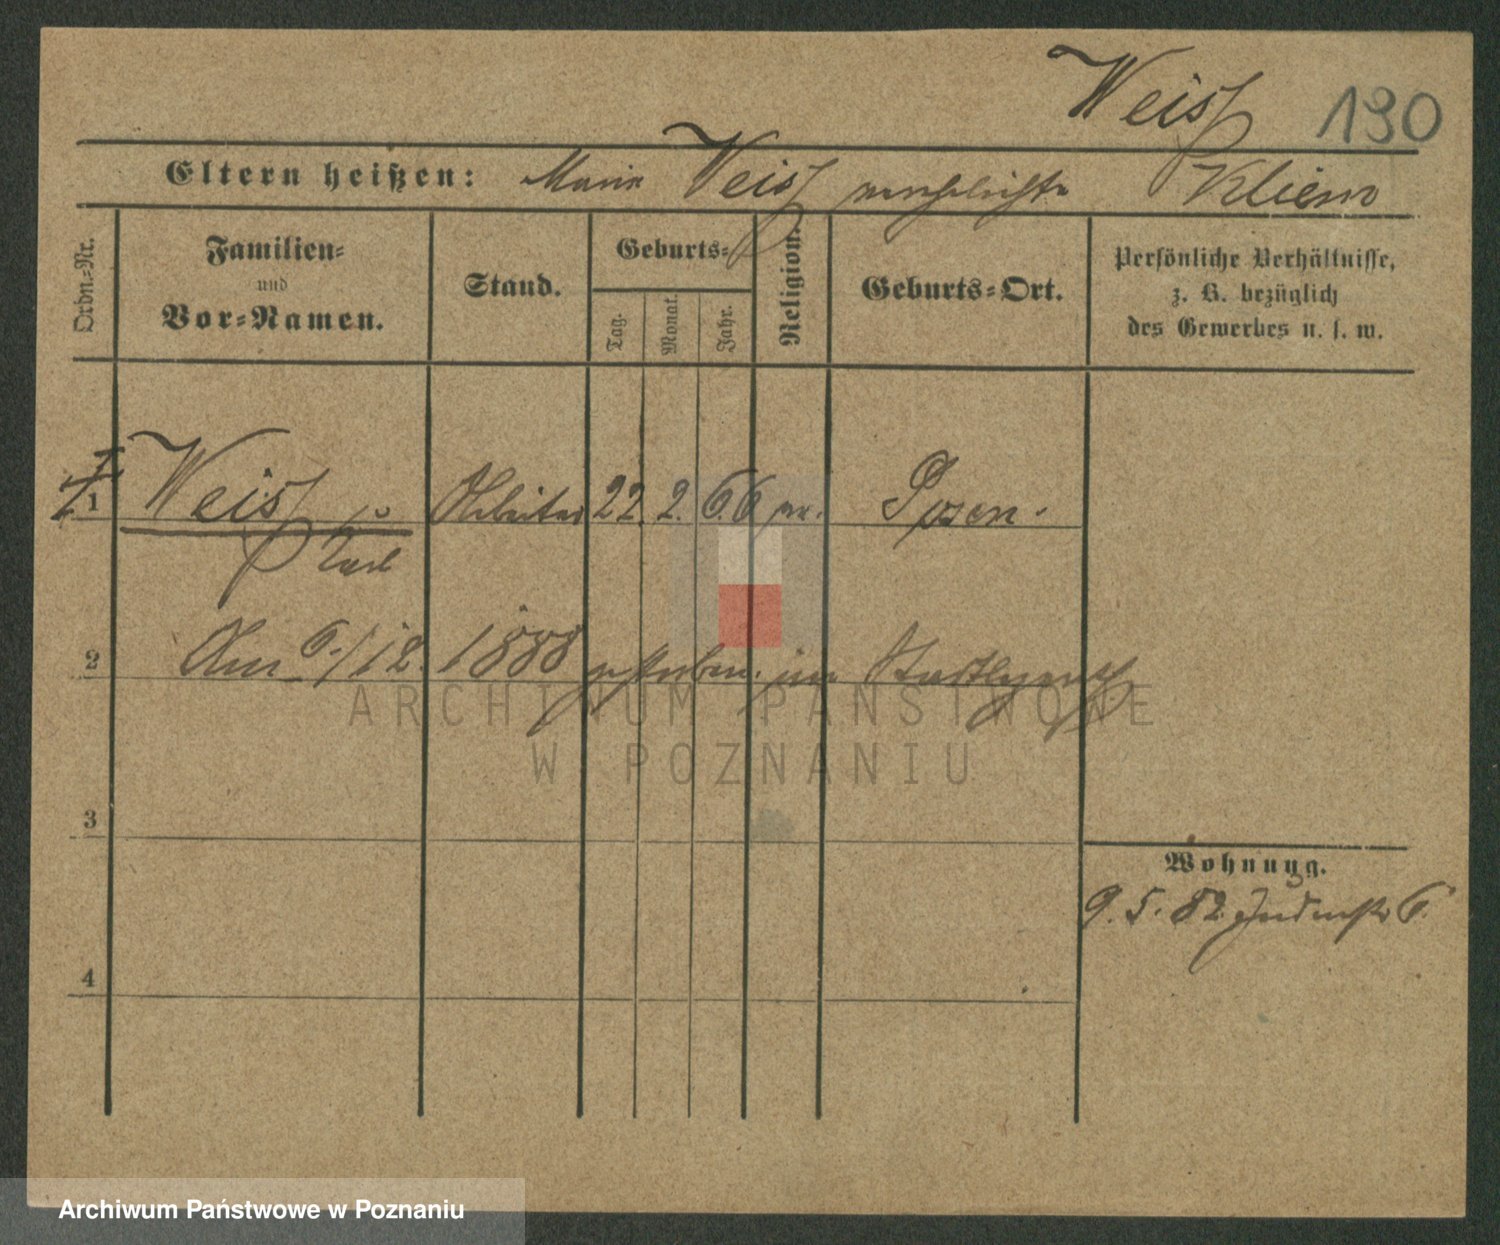 Weiß 190
Eltern heißen: Maria Weiß verehelichte Kliem
Ordn.=Nr.
Familien=
und
Vor=Namen.
Stand.
Geburts=
Tag.
Monat.
Jahr.
Religion.
Geburts=Ort.
Persönliche Verhältnisse,
z. B. bezüglich
des Gewerbes u. s. w.
1 Weiß Arbeiter 22. 2. 66 Posen.
Karl
2 Am 6./12. 1888 gestorben im
3
4
Wohnung.
9. 5. 82. Judenstr 6.
ARCHIWUM PAŃSTWOWE
W POZNANIU
Archiwum Państwowe w Poznaniu